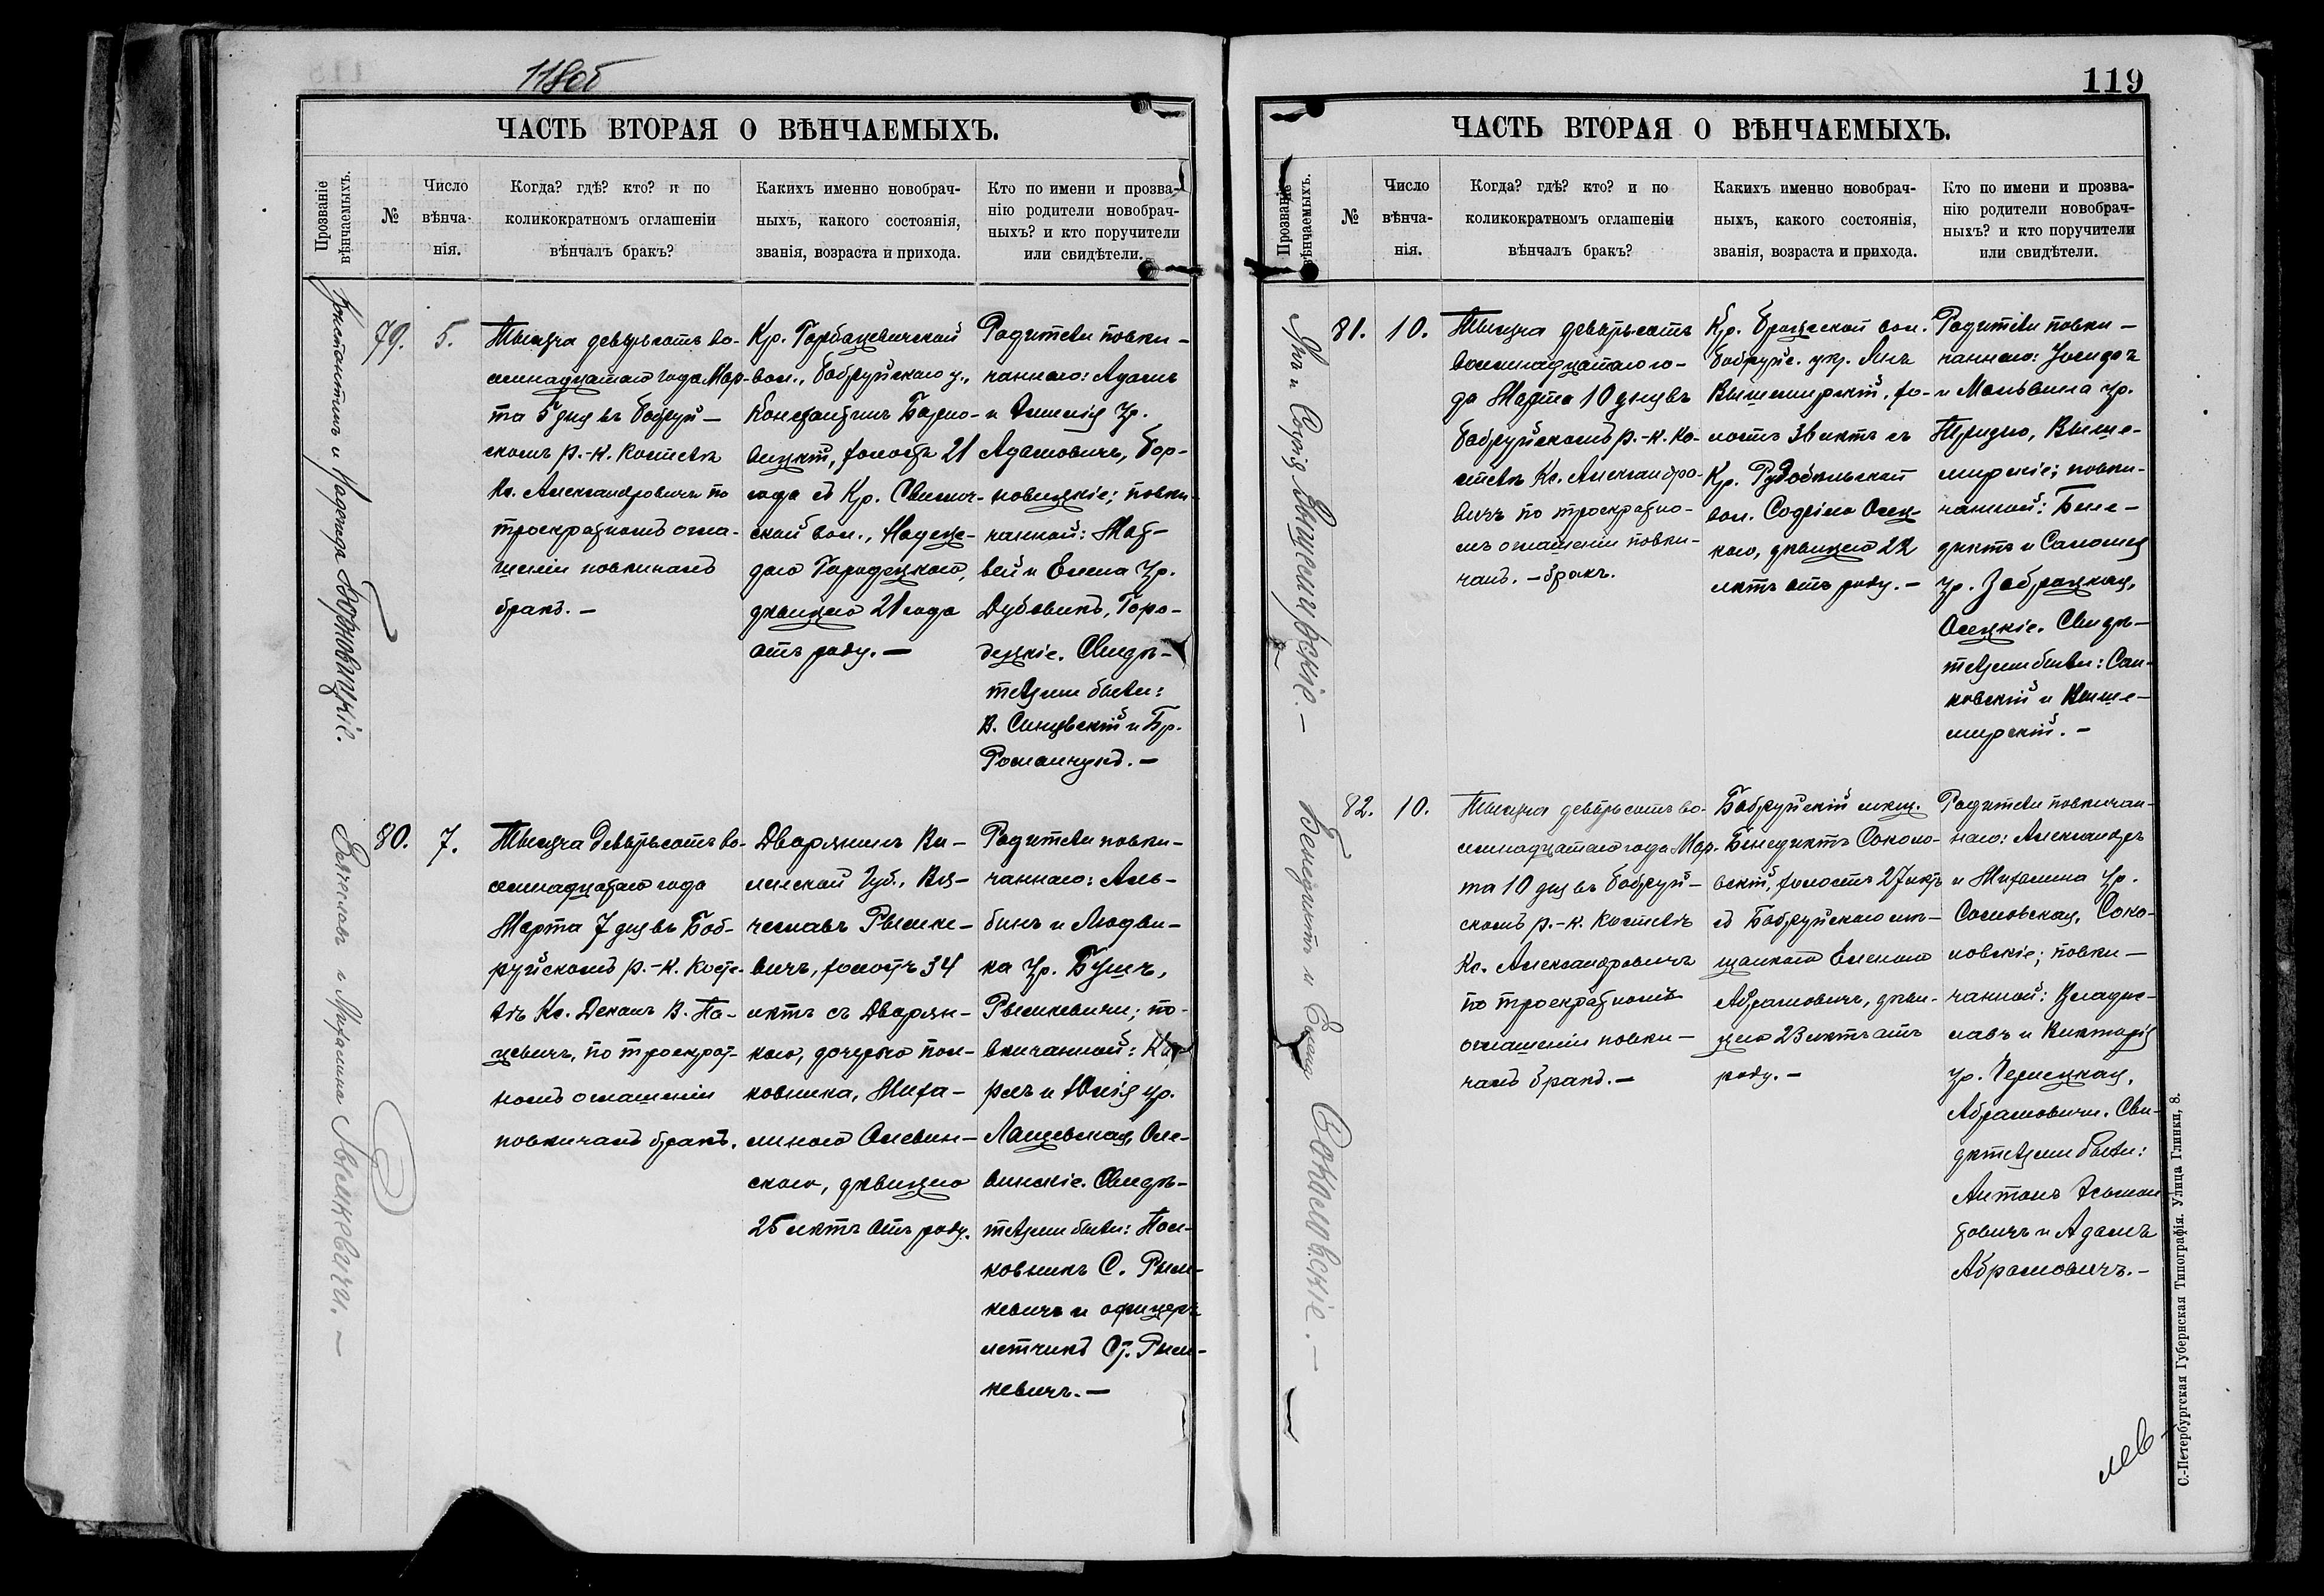 118об
ЧАСТЬ ВТОРАЯ О ВѢНЧАЕМЫХЪ.
Прозваніе
вѣнчаемыхъ.
№
Число
вѣнча-
нія.
Когда? гдѣ? кто? и по
коликократномъ оглашеніи
вѣнчалъ бракъ?
Какихъ именно новобрач-
ныхъ, какого состоянія,
званія, возраста и прихода.
Кто по имени и прозва-
нію родители новобрач-
ныхъ? и кто поручители
или свидѣтели.
Константинъ и Надежда Борновицкіе.
79.
5.
Тысяча девятьсотъ во-
семнадцатаго года Мар-
та 5 дня въ Бобруй-
скомъ р.-к. костелѣ
Кс. Александровичъ по
троекратномъ огла-
шеніи повѣнчалъ
бракъ. —
Кр. Горбацевичской
вол., Бобруйскаго у.,
Константинъ Борно-
вицкій, холостъ 21
года съ Кр.
ской вол., Надеж-
дою Городецкою,
дѣвицею 21 года
отъ роду. —
Родители повѣн-
чаннаго: Адамъ
и Эмилія ур.
Адамовичъ, Бор-
новицкіе; повѣн-
чанной: Мат-
вей и Елена ур.
Дубовикъ, Горо-
децкіе. Свидѣ-
телями были:
В. и Бр.
Романчукъ. —
Вячеславъ и Михалина Рымкевичи. —
80.
7.
Тысяча девятьсотъ во-
семнадцатаго года
Марта 7 дня въ Боб-
руйскомъ р.-к. косте-
лѣ Кс. Деканъ В. Па-
цевичъ, по троекрат-
номъ оглашеніи
повѣнчалъ бракъ.
Дворянинъ Ви-
ленской Губ., Вя-
чеславъ Рымке-
вичъ, холостъ 34
лѣтъ съ Дворян-
кою, дочерью пол-
ковника, Миха-
линою Олевин-
скою, дѣвицею
25 лѣтъ отъ роду.
Родители повѣн-
чаннаго: Аль-
бинъ и Людви-
ка ур. Бушъ,
Рымкевичи; по-
вѣнчанной: Ка-
ролъ и Юлія ур.
Оле-
винскіе. Свидѣ-
телями были: Пол-
ковникъ С. Рым-
кевичъ и офицеръ
летчикъ Ст. Рым-
кевичъ. —
119
ЧАСТЬ ВТОРАЯ О ВѢНЧАЕМЫХЪ.
Прозваніе
вѣнчаемыхъ.
№
Число
вѣнча-
нія.
Когда? гдѣ? кто? и по
коликократномъ оглашеніи
вѣнчалъ бракъ?
Какихъ именно новобрач-
ныхъ, какого состоянія,
званія, возраста и прихода.
Кто по имени и прозва-
нію родители новобрач-
ныхъ? и кто поручители
или свидѣтели.
Янъ и Софія Вышемирскіе. —
81.
10.
Тысяча девятьсотъ
восемнадцатаго го-
да Марта 10 дня въ
Бобруйскомъ р.-к. ко-
стелѣ Кс. Александро-
вичъ по троекратно-
мъ оглашеніи повѣн-
чалъ. — бракъ.
Кр. Брожской вол.
Бобруйс. у. Янъ
Вышемирскій, хо-
лостъ 36 лѣтъ съ
Кр. Рудобѣльской
вол. Софіею Осец-
кою, дѣвицею 22
лѣтъ отъ роду. —
Родители повѣн-
чаннаго: Иосифъ
и Мальвина ур.
Выше-
мирскіе; повѣн-
чанной: Бене-
диктъ и Саломея
ур. Забрацкая,
Осецкіе. Свидѣ-
телями были:
ковскій и Выше-
мирскій. —
Бенедиктъ и Елена Соколовскіе. —
82.
10.
Тысяча девятьсотъ во-
семнадцатаго года Мар-
та 10 дня въ Бобруй-
скомъ р.-к. костелѣ
Кс. Александровичъ
по троекратномъ
оглашеніи повѣн-
чалъ бракъ. —
Бобруйскій мѣщ.
Бенедиктъ Соколо-
вскій, холостъ 27 лѣтъ
съ Бобруйскою мѣ-
щанкою Еленою
Абрамовичъ, дѣви-
цею 23 лѣтъ отъ
роду. —
Родители повѣнчан-
наго: Александръ
и Михалина ур.
Сосновская, Соко-
ловскіе; повѣн-
чанной: Владис-
лавъ и Викторія
ур.
Абрамовичи. Сви-
дѣтелями были:
Антонъ
и Адамъ
Абрамовичъ. —
С.-Петербургская Губернская Типографія. Улица Глинки, 8.